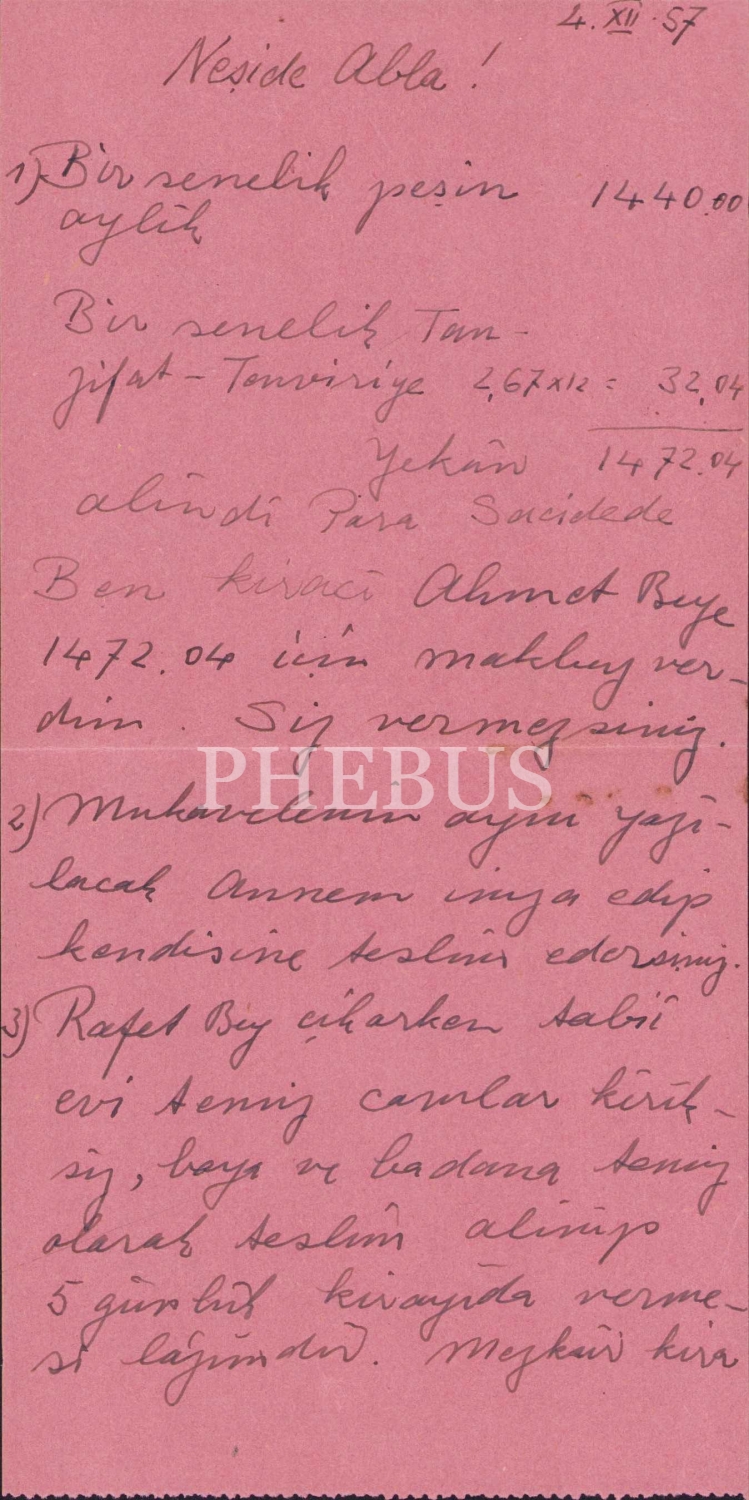 4. XII. 57
Neşide Abla!
1) Bir senelik peşin 1440.00
aylık
Bir senelik Tan-
zifat - Tenviriye 2,67x12 = 32,04
Yekûn 1472.04
alındı Para Sacidede
Ben kiracı Ahmet Beye
1472.04 için makbuz ver-
dim. Siz vermezsiniz.
PHEBUS
2) Mukavelenin aynı yazı-
lacak Annem imza edip
kendisine teslim edersiniz.
3) Rafet Bey çıkarken tabiî
evi temiz camlar kırık-
sız, boya ve badana temiz
olarak teslim alınıp
5 günlük kirayıda verme-
si lâzımdır. Mezkûr kira